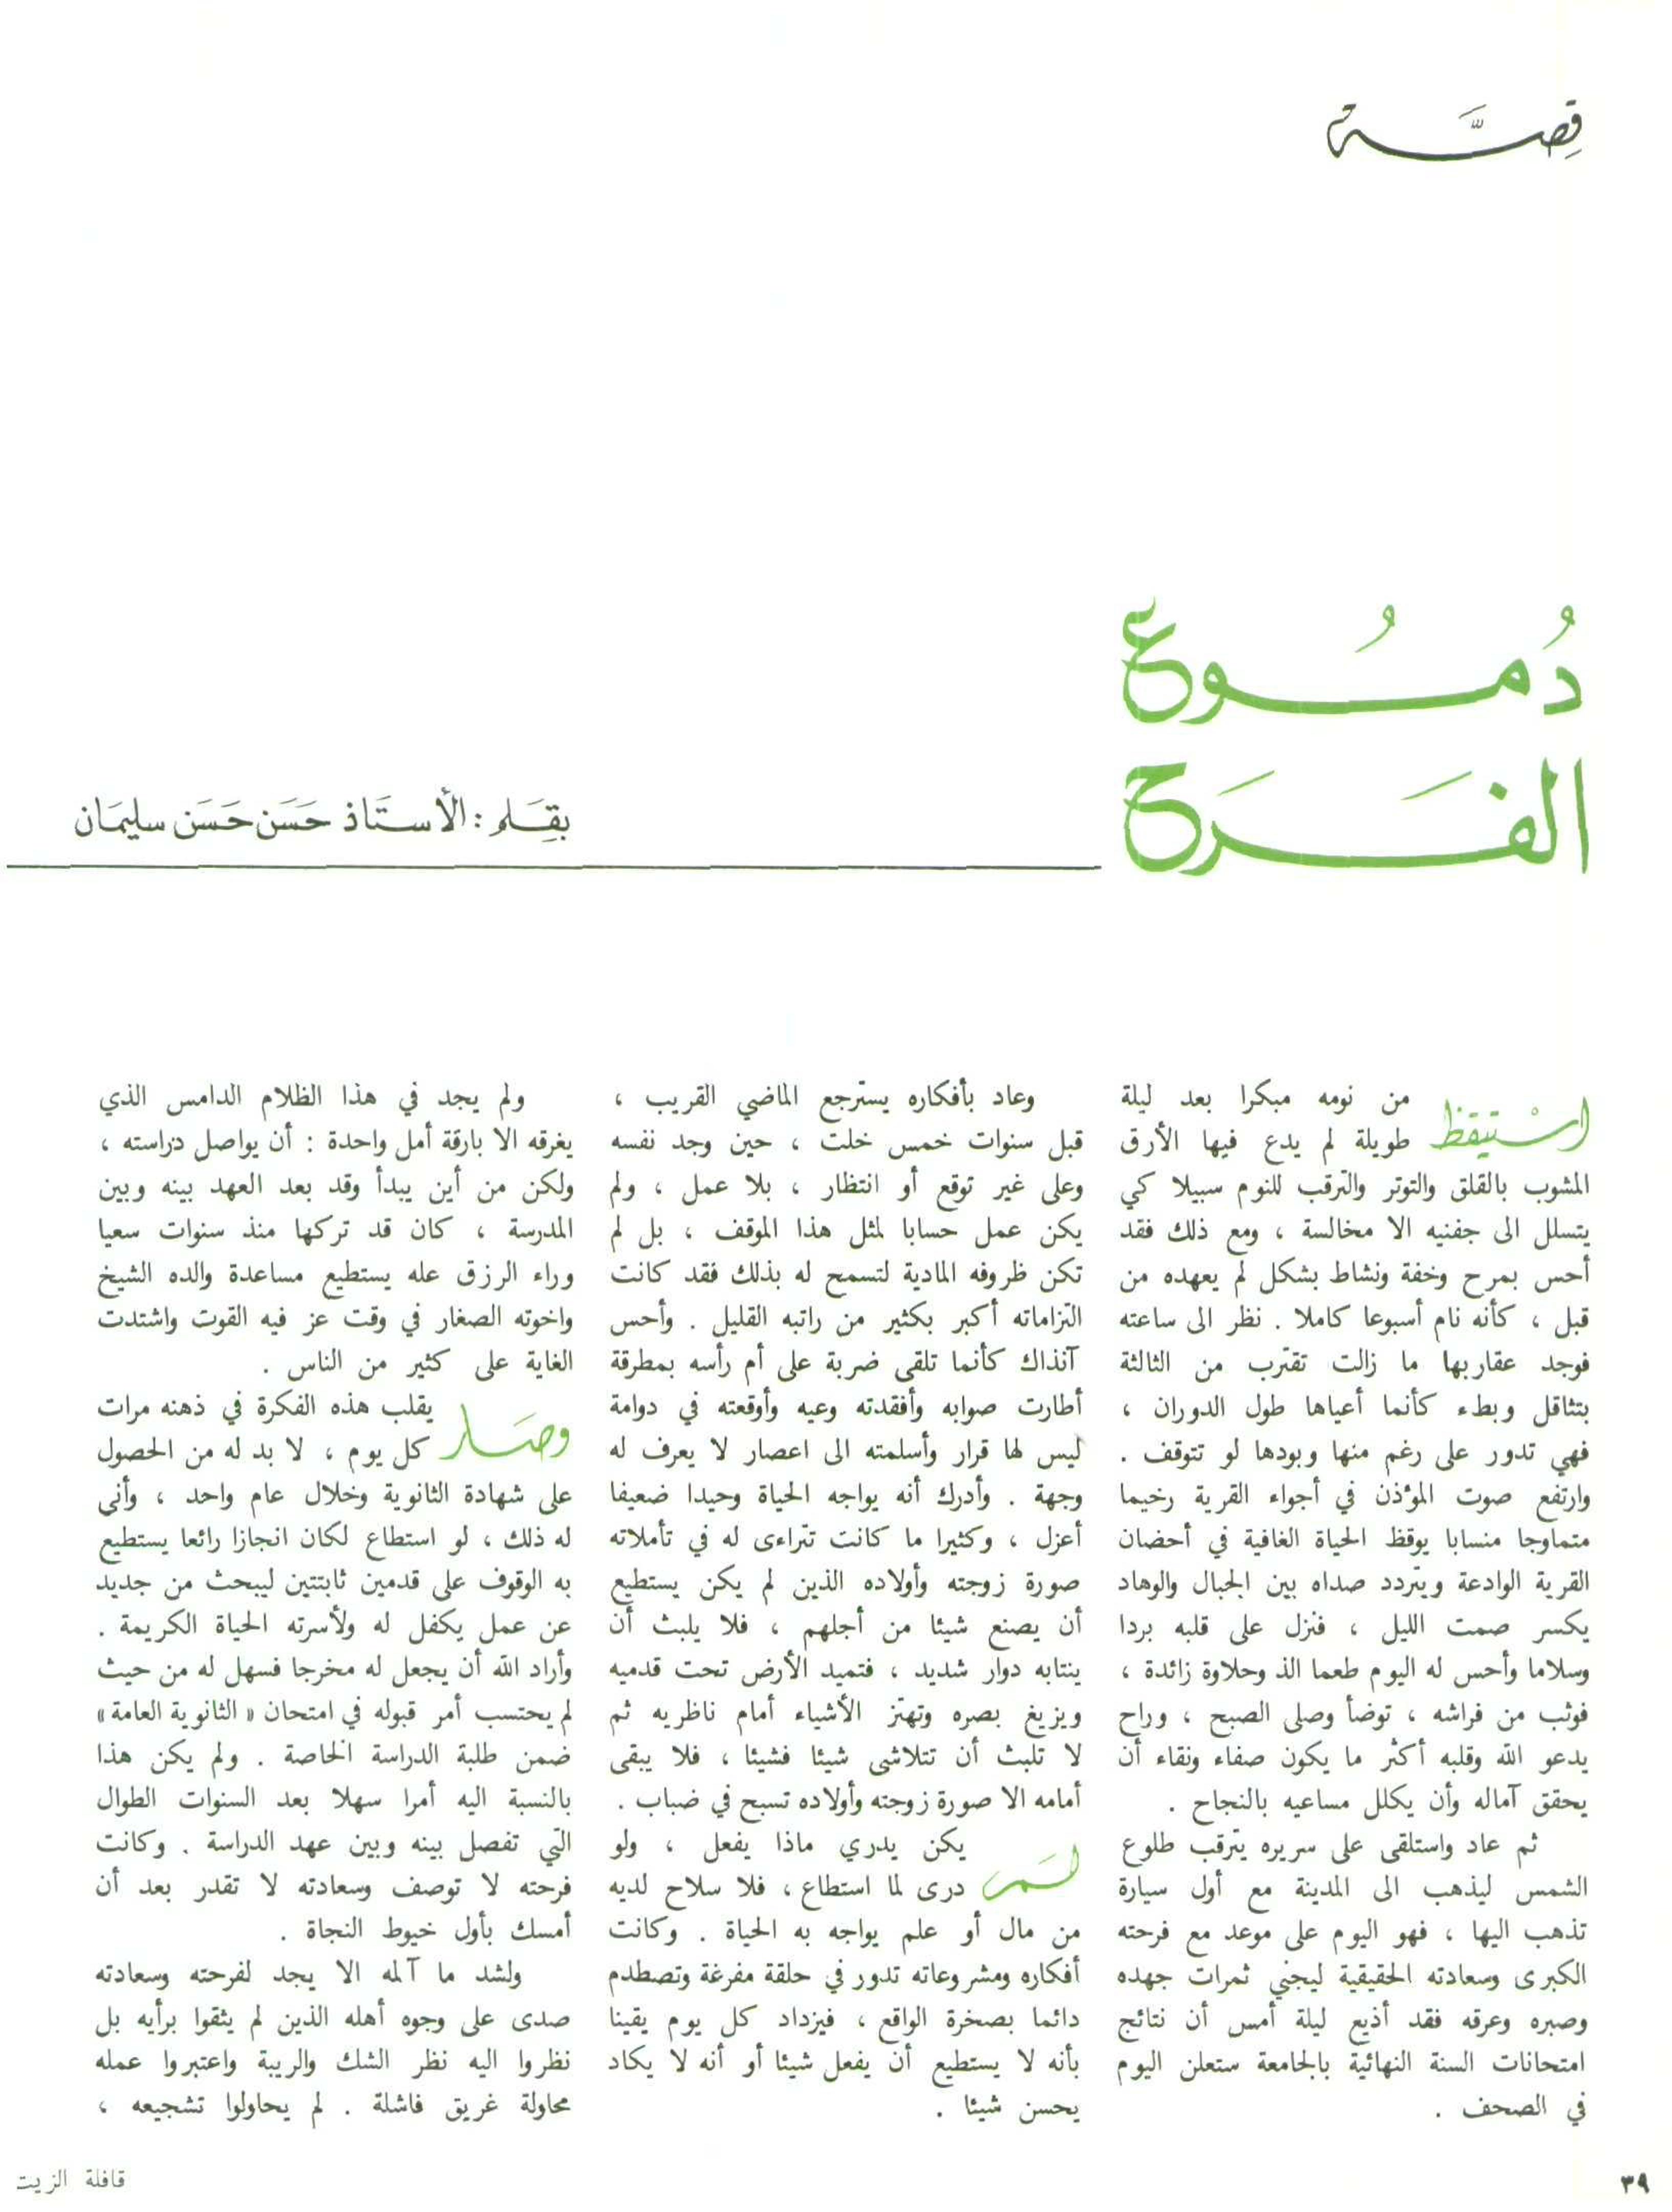 قِصَّة
دُمُوع
الفَرَح
بقِلَم : الأستَاذ حَسَن حَسَن سليمَان
اسْتيقظ من نومه مبكرا بعد ليلة
طويلة لم يدع فيها الأرق
المشوب بالقلق والتوتر والترقب للنوم سبيلا كي
يتسلل الى جفنيه الا مخالسة ، ومع ذلك فقد
أحس بمرح وخفة ونشاط بشكل لم يعهده من
قبل ، كأنه نام أسبوعا كاملا . نظر الى ساعته
فوجد عقاربها ما زالت تقترب من الثالثة
بتثاقل وبطء كأنما أعياها طول الدوران ،
فهي تدور على رغم منها وبودها لو تتوقف .
وارتفع صوت المؤذن في أجواء القرية رخيما
متماوجا منسابا يوقظ الحياة الغافية في أحضان
القرية الوادعة ويتردد صداه بين الجبال والوهاد
يكسر صمت الليل ، فنزل على قلبه بردا
وسلاما وأحس له اليوم طعما الذ وحلاوة زائدة ،
فوثب من فراشه ، توضأ وصلى الصبح ، وراح
يدعو الله وقلبه أكثر ما يكون صفاء ونقاء أن
يحقق آماله وأن يكلل مساعيه بالنجاح .
ثم عاد واستلقى على سريره يترقب طلوع
الشمس ليذهب الى المدينة مع أول سيارة
تذهب اليها ، فهو اليوم على موعد مع فرحته
الكبرى وسعادته الحقيقية ليجني ثمرات جهده
وصبره وعرقه فقد أذيع ليلة أمس أن نتائج
امتحانات السنة النهائية بالجامعة ستعلن اليوم
في الصحف .
وعاد بأفكاره يسترجع الماضي القريب ،
قبل سنوات خمس خلت ، حين وجد نفسه
وعلى غير توقع أو انتظار ، بلا عمل ، ولم
يكن عمل حسابا لمثل هذا الموقف ، بل لم
تكن ظروفه المادية لتسمح له بذلك فقد كانت
التزاماته أكبر بكثير من راتبه القليل . وأحس
آنذاك كأنما تلقى ضربة على أم رأسه بمطرقة
أطارت صوابه وأفقدته وعيه وأوقعته في دوامة
ليس لها قرار وأسلمته الى اعصار لا يعرف له
وجهة . وأدرك أنه يواجه الحياة وحيدا ضعيفا
أعزل ، وكثيرا ما كانت تتراءى له في تأملاته
صورة زوجته وأولاده الذين لم يكن يستطيع
أن يصنع شيئا من أجلهم ، فلا يلبث أن
ينتابه دوار شديد ، فتميد الأرض تحت قدميه
ويزيغ بصره وتهتز الأشياء أمام ناظريه ثم
لا تلبث أن تتلاشى شيئا فشيئا ، فلا يبقى
أمامه الا صورة زوجته وأولاده تسبح في ضباب .
لـَم يكن يدري ماذا يفعل ، ولو
درى لما استطاع ، فلا سلاح لديه
من مال أو علم يواجه به الحياة . وكانت
أفكاره ومشروعاته تدور في حلقة مفرغة وتصطدم
دائما بصخرة الواقع ، فيزداد كل يوم يقينا
بأنه لا يستطيع أن يفعل شيئا أو أنه لا يكاد
يحسن شيئا .
ولم يجد في هذا الظلام الدامس الذي
يغرقه الا بارقة أمل واحدة : أن يواصل دراسته ،
ولكن من أين يبدأ وقد بعد العهد بينه وبين
المدرسة ، كان قد تركها منذ سنوات سعيا
وراء الرزق عله يستطيع مساعدة والده الشيخ
واخوته الصغار في وقت عز فيه القوت واشتدت
الغاية على كثير من الناس .
وصَار يقلب هذه الفكرة في ذهنه مرات
كل يوم ، لا بد له من الحصول
على شهادة الثانوية وخلال عام واحد ، وأنى
له ذلك ، لو استطاع لكان انجازا رائعا يستطيع
به الوقوف على قدمين ثابتتين ليبحث من جديد
عن عمل يكفل له ولأسرته الحياة الكريمة .
وأراد الله أن يجعل له مخرجا فسهل له من حيث
لم يحتسب أمر قبوله في امتحان « الثانوية العامة »
ضمن طلبة الدراسة الخاصة . ولم يكن هذا
بالنسبة اليه أمرا سهلا بعد السنوات الطوال
التي تفصل بينه وبين عهد الدراسة . وكانت
فرحته لا توصف وسعادته لا تقدر بعد أن
أمسك بأول خيوط النجاة .
ولشد ما آلمه الا يجد لفرحته وسعادته
صدى على وجوه أهله الذين لم يثقوا برأيه بل
نظروا اليه نظر الشك والريبة واعتبروا عمله
محاولة غريق فاشلة . لم يحاولوا تشجيعه ،
٣٩
قافلة الزيت